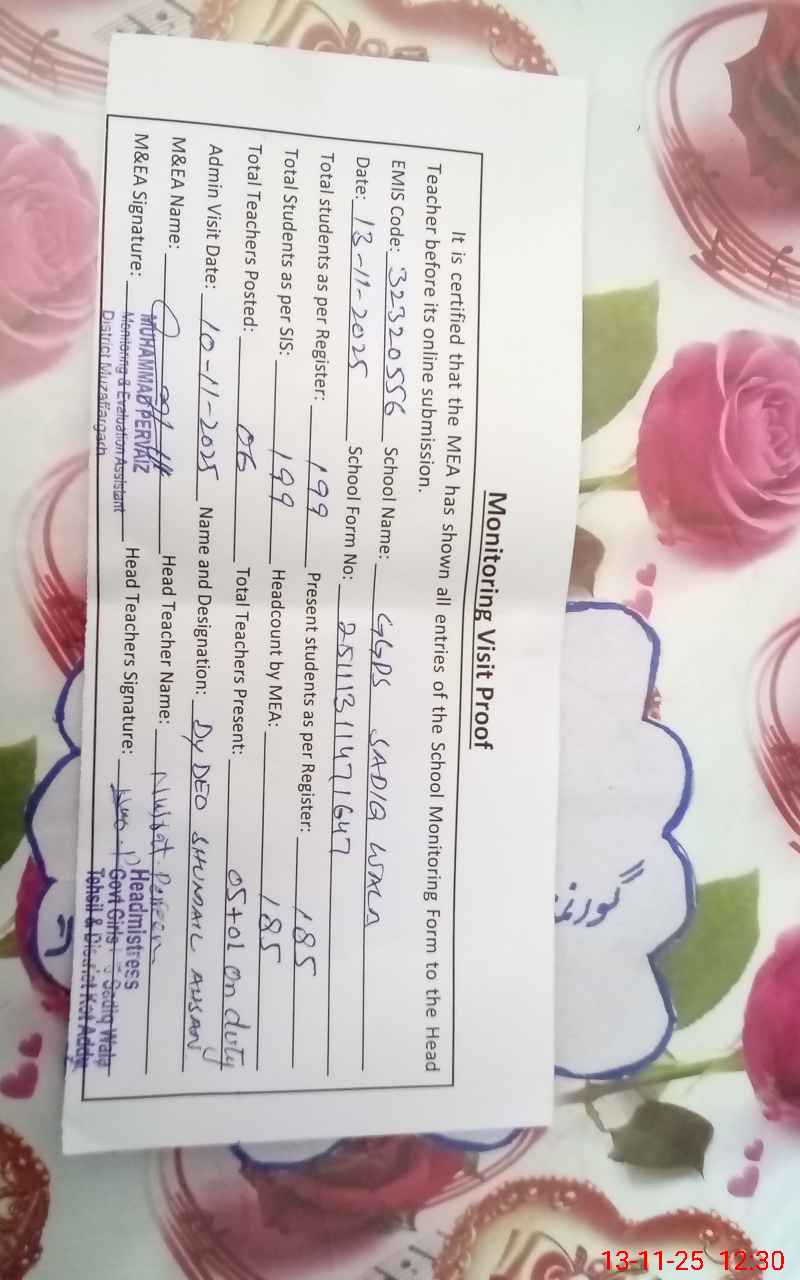 Monitoring Visit Proof
It is certified that the MEA has shown all entries of the School Monitoring Form to the Head
Teacher before its online submission.
EMIS Code: 32320556 School Name: GGPS SADIQ WALA
Date: 13-11-2025 School Form No: 251113114771647
Total students as per Register: 199 Present students as per Register: 185
Total Students as per SIS: 199 Headcount by MEA: 185
Total Teachers Posted: 06 Total Teachers Present: 05+01 on duty
Admin Visit Date: 10-11-2025 Name and Designation: Dy DEO SHUMAIL AHSAN
M&EA Name: Head Teacher Name: Nusrat Parveen
M&EA Signature: Head Teachers Signature:
MUHAMMAD PERVAIZ
Monitoring & Evaluation Assistant
District Muzaffargarh
Headmistress
Govt Girls Sadiq Wala
Tehsil & District Kot Addu
13-11-25 12:30